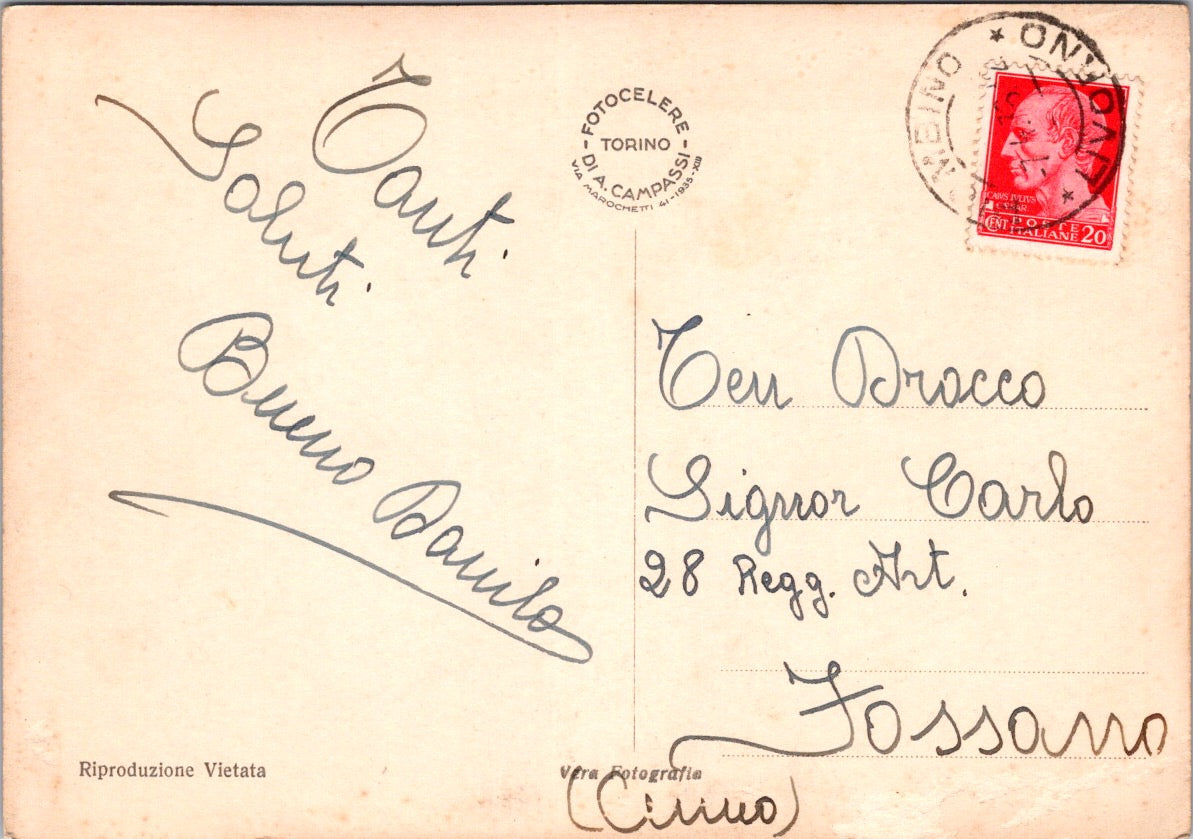 Tanti
Saluti
Bueno Danilo
FOTOCELERE
TORINO
DI A. CAMPASSI
VIA MAROCHETTI 41-1935-XIII
LIVORNO
CAIVS IVLIVS
CAESAR
POSTE
CENT ITALIANE 20
Ten Drocco
Signor Carlo
28 Regg. Art.
Fossano
(Cuneo)
Riproduzione Vietata
Vera Fotografia